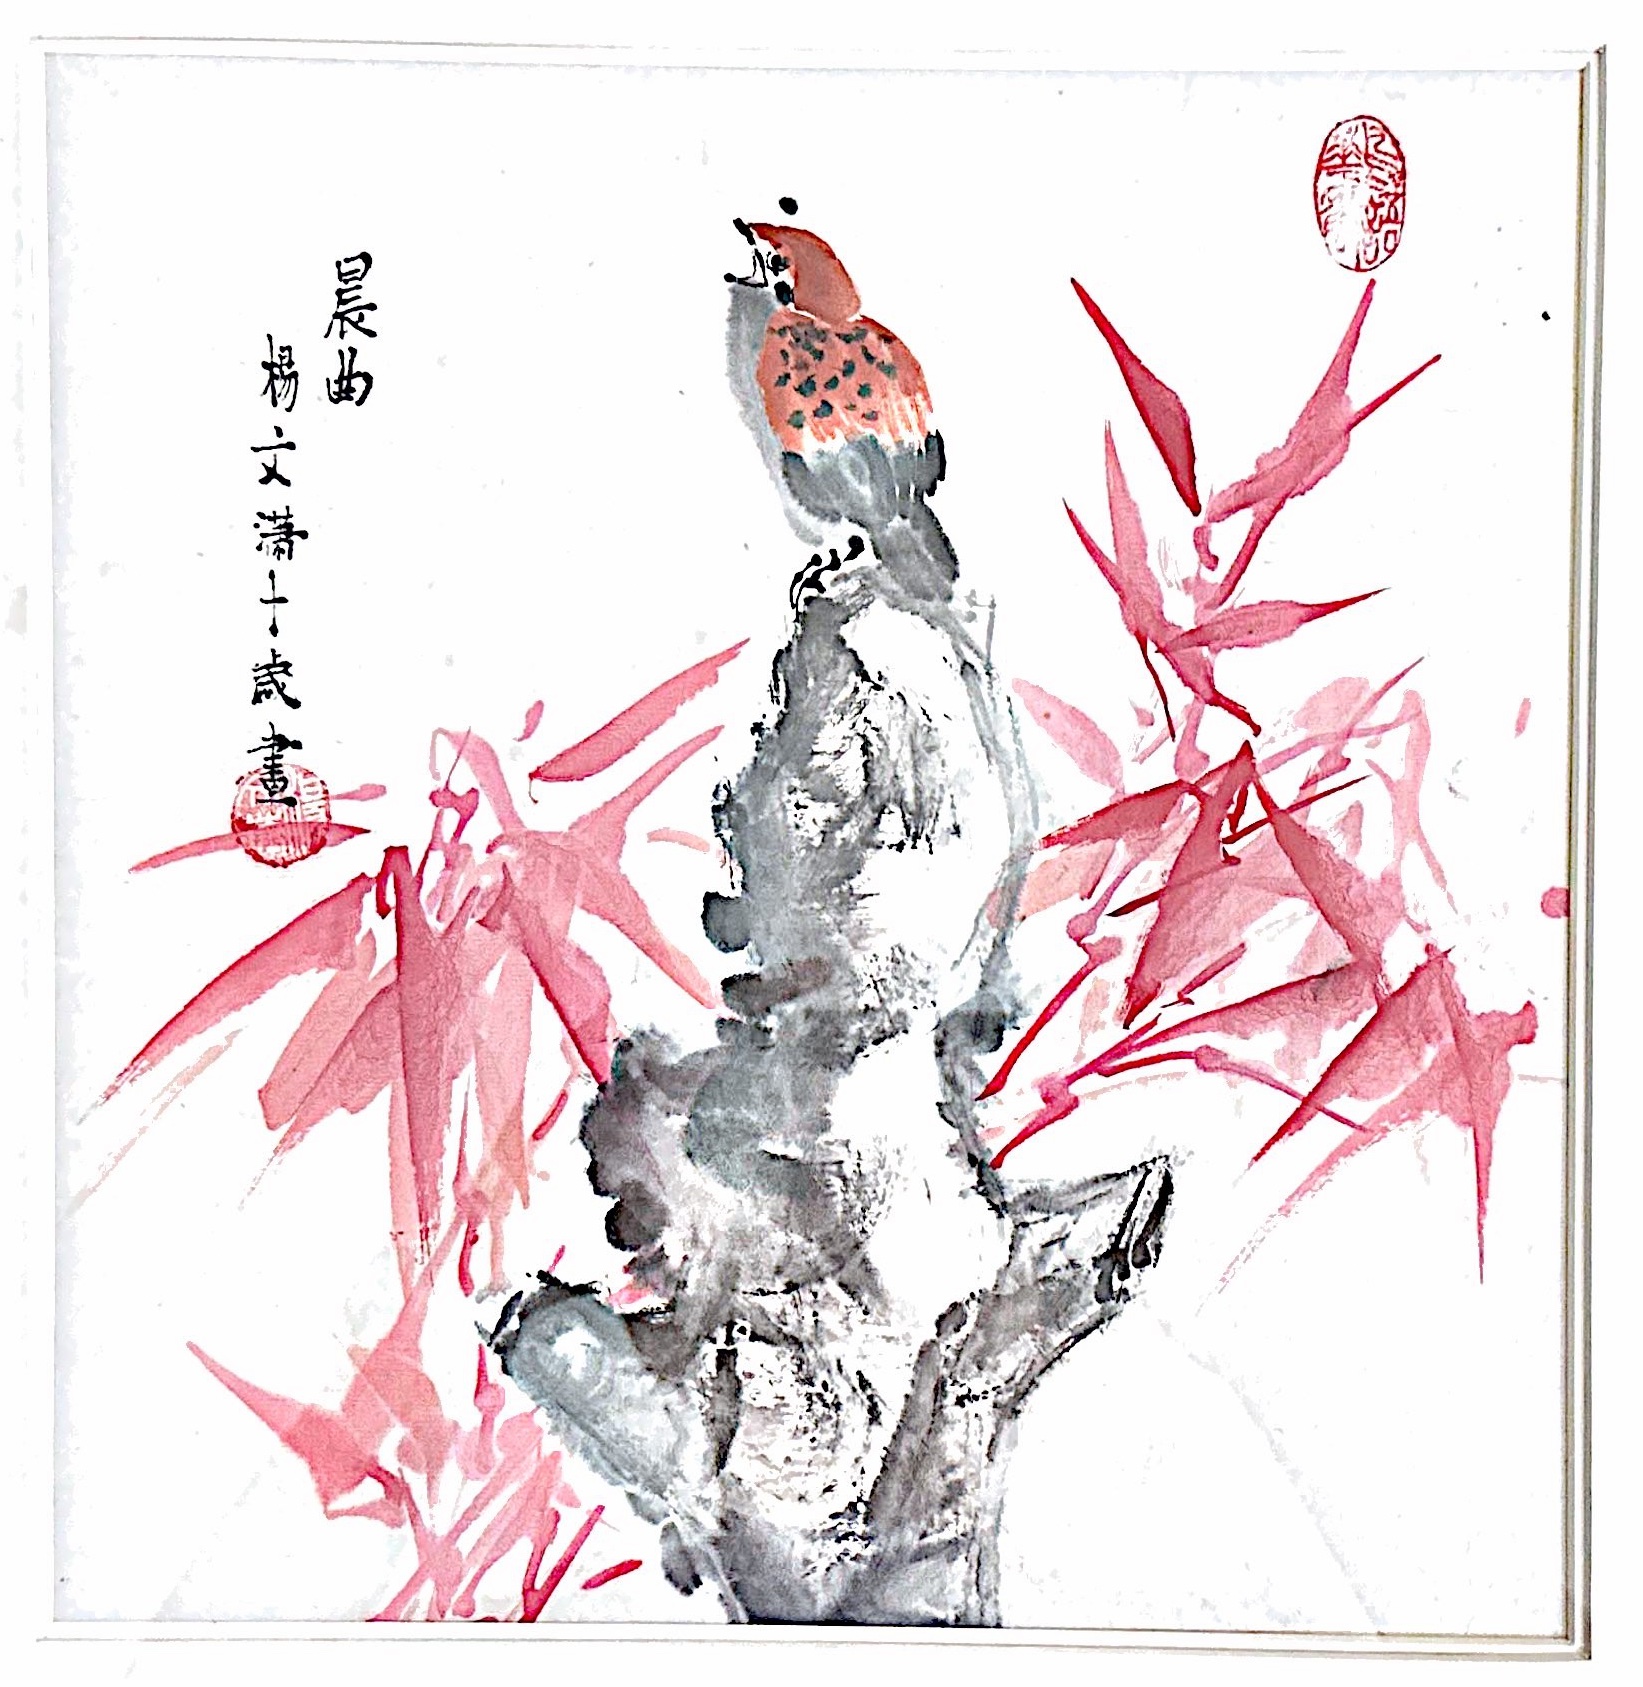 晨曲
楊文瀟十歲畫